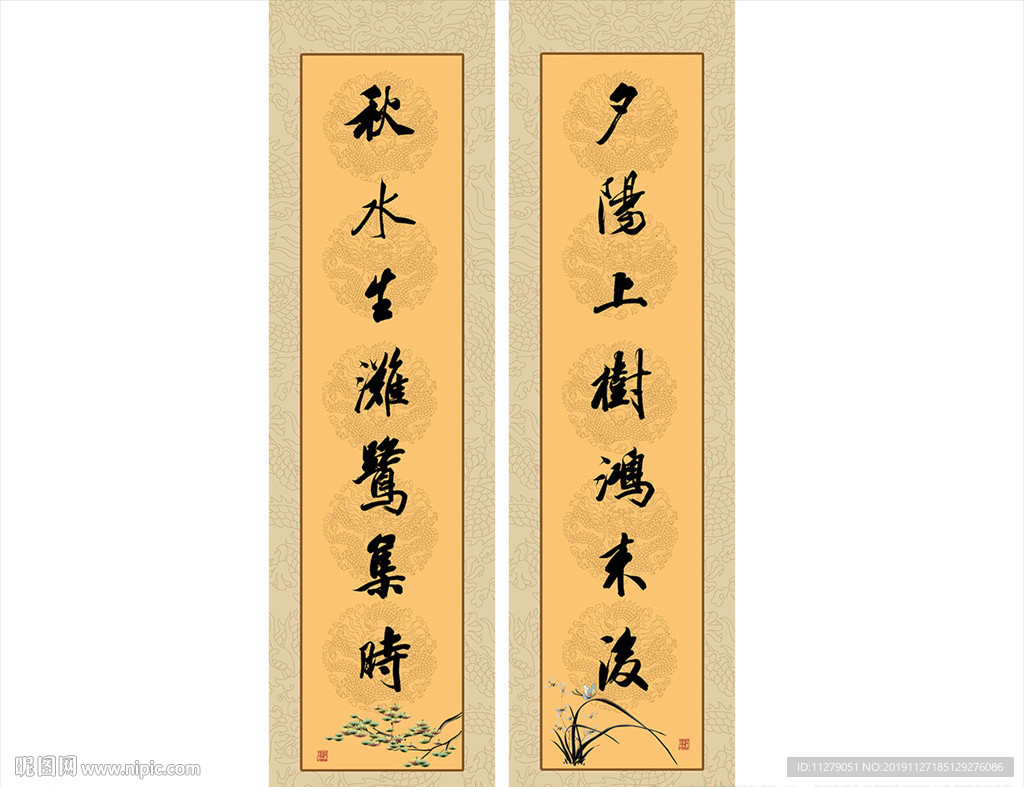 夕陽上樹鴻来後
秋水生灘鷺集時
昵图网 www.nipic.com
ID:11279051 NO:20191127185129276086